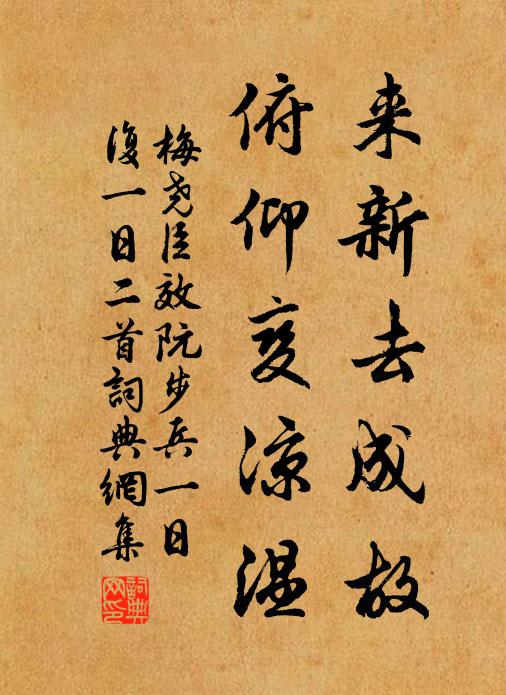 来新去成故
俯仰变凉温
梅尧臣效阮步兵一日
復一日二首詞典網集
詞典
网印